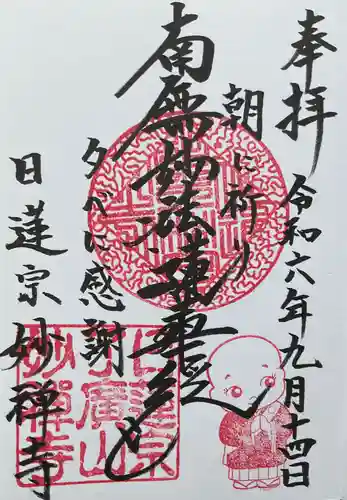 奉拝
令和六年九月十四日
朝に祈り
南無妙法蓮華経
夕べに感謝
日蓮宗
妙禅寺
日蓮宗
了廣山
妙禅寺